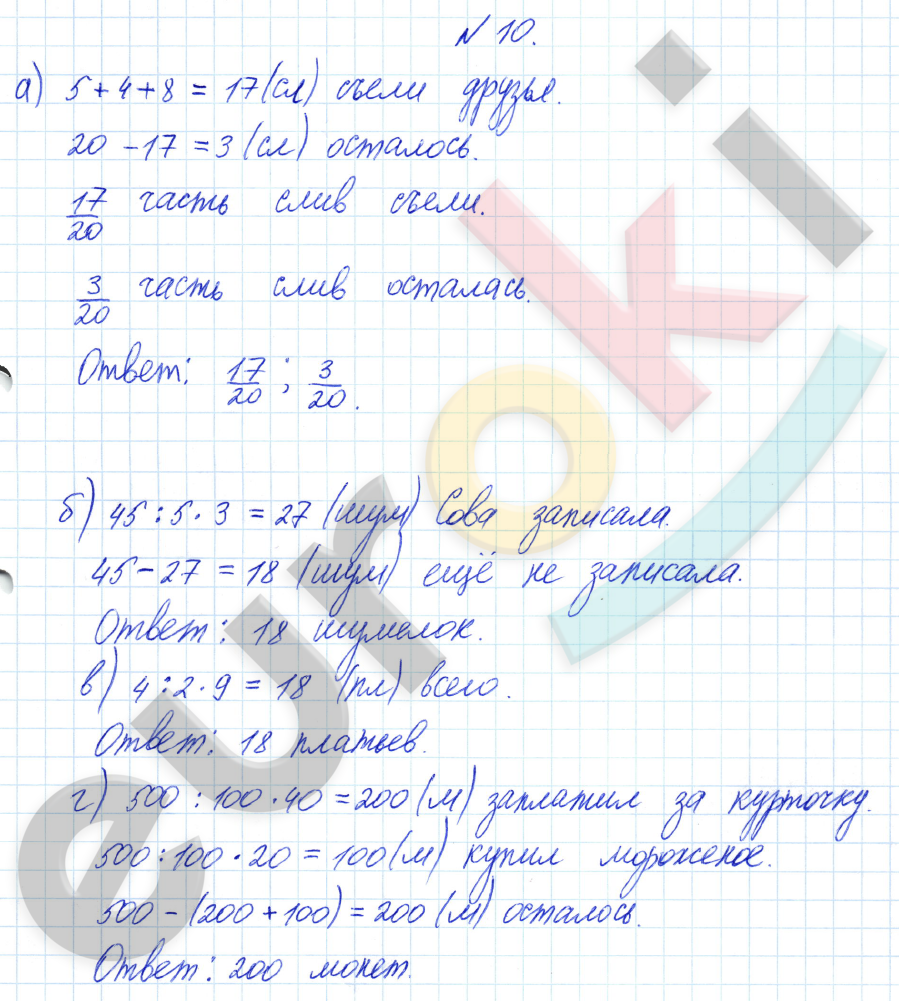 № 10.
а) 5 + 4 + 8 = 17 (сл) съели друзья.
20 - 17 = 3 (сл) осталось.
17/20 часть слив съели.
3/20 часть слив осталась.
Ответ: 17/20 ; 3/20.
б) 45 : 5 · 3 = 27 (шум) Сова записала.
45 - 27 = 18 (шум) ещё не записала.
Ответ: 18 шумелок.
в) 4 : 2 · 9 = 18 (пл) всего.
Ответ: 18 платьев.
г) 500 : 100 · 40 = 200 (м) заплатил за курточку.
500 : 100 · 20 = 100 (м) купил мороженое.
500 - (200 + 100) = 200 (м) осталось.
Ответ: 200 монет.
euroki